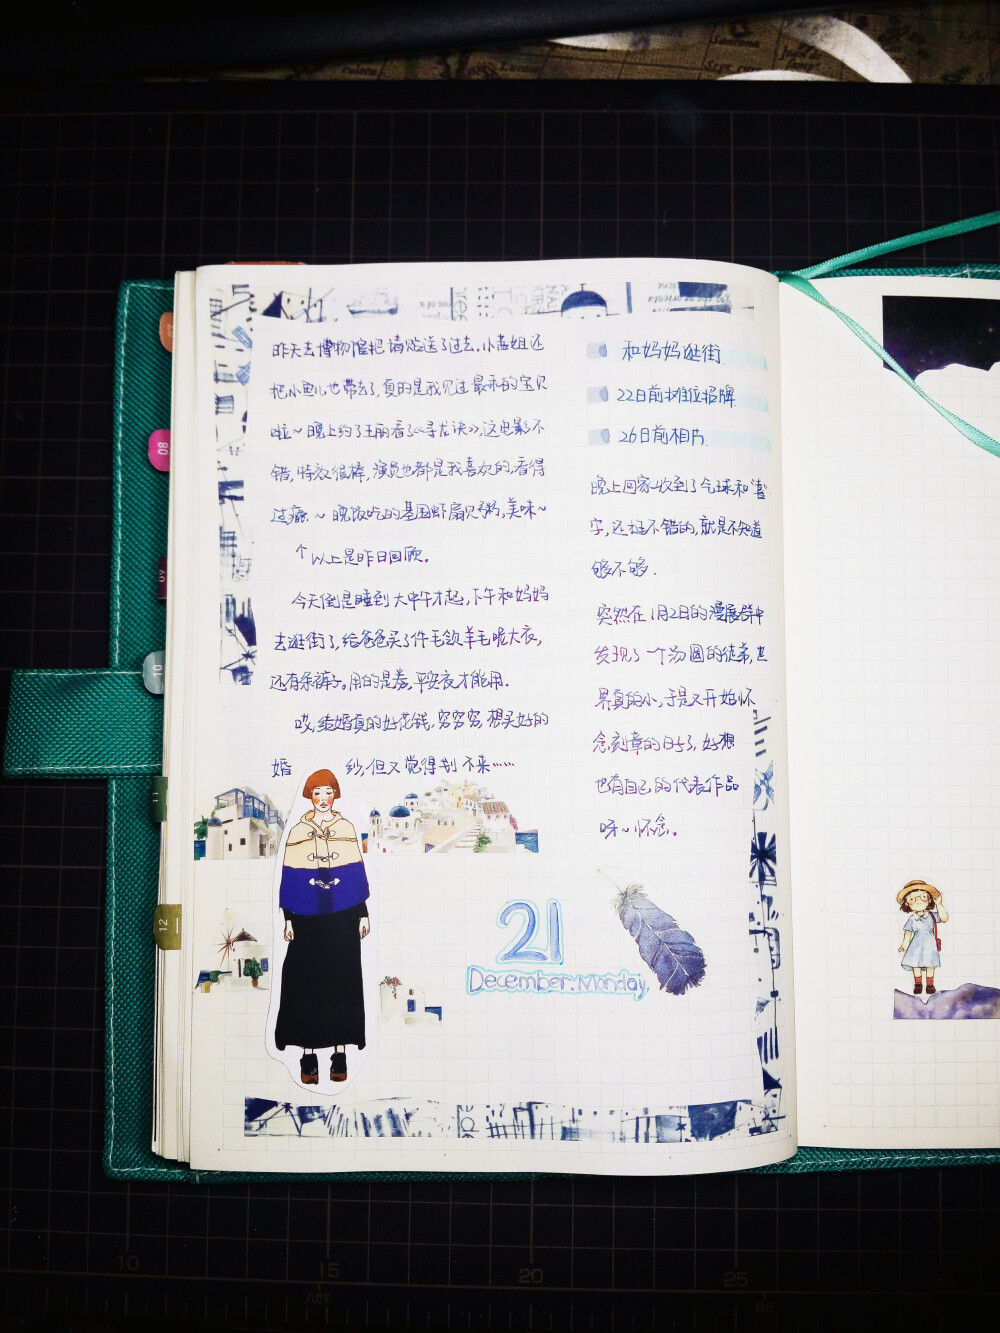 昨天去博物馆把请帖送了过去,小喜姐还
把小鱼儿也带去了,真的是我见过最乖的宝贝
啦~晚上约了王丽看了《寻龙诀》,这电影不
错,特效很棒,演员也都是我喜欢的,看得
过瘾~晚饭吃的基围虾扇贝粥,美味~
个以上是昨日回顾。
今天倒是睡到大中午才起,下午和妈妈
去逛街了,给爸爸买了件毛领羊毛呢大衣,
还有条裤子。用的是券,平安夜才能用.
哎,结婚真的好花钱,穷穷穷,想买好的
婚 纱,但又觉得划不来……
和妈妈逛街
22日前摊位招牌
26日前相片
晚上回家收到了气球和"喜"
字,还挺不错的,就是不知道
够不够.
突然在1月2日的漫展群中
发现了一个汤圆的徒弟,世
界真的小,于是又开始怀
念刻章的日子了,好想
也有自己的代表作品
呀~怀念。
21
December.Monday
07
08
09
10
11
12
10
15
20
25